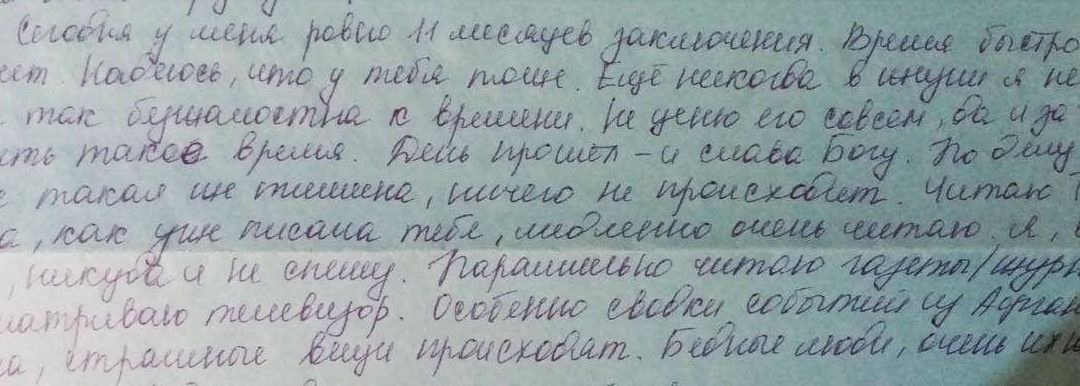 Сегодня у меня ровно 11 месяцев заключения. Время быстро
ет. Надеюсь, что у тебя тоже. Ещё никогда в жизни я не
так безжалостна к времени. Не ценю его совсем, да и за
ить такое время. День прошёл – и слава Богу. По делу
такая же тишина, ничего не происходит. Читаю
а, как уже писала тебе, медленно очень читаю, я,
, никуда и не спешу. Параллельно читаю газеты/журн
матриваю телевизор. Особенно сводки событий из Афган
на, страшные вещи происходят. Бедные люди, очень их